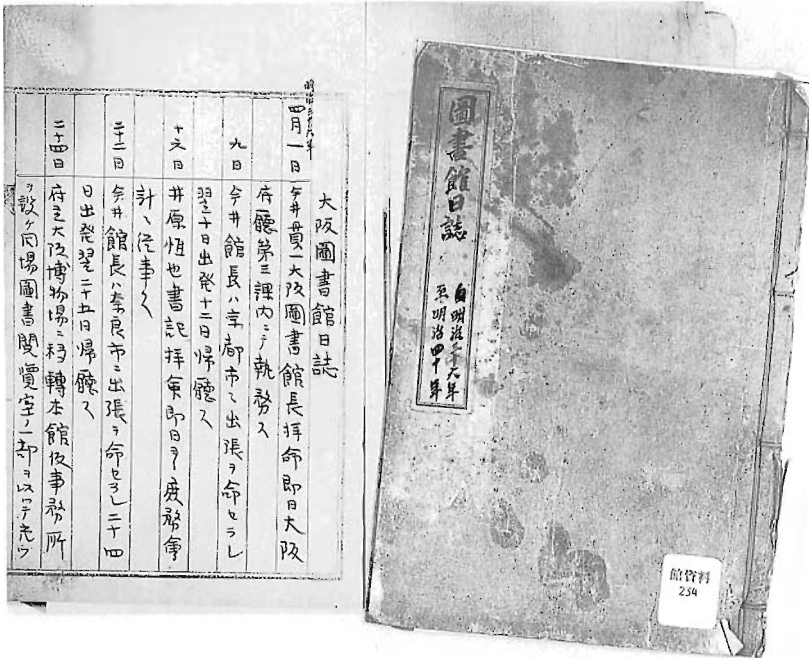 圖書館日誌
自明治三十六年
至明治四十年
館資料
234
大阪圖書館日誌
明治三十六年
四月一日 今井貫一大阪圖書館長拝命即日大阪
府廳第三課内ニテ執務ス
九日 今井館長ハ京都市ヘ出張ヲ命セラレ
翌十日出発十二日帰廳ス
十六日 井原恒也書記拝命即日ヨリ庶務會
計ニ従事ス
二十三日 今井館長ハ奈良市ニ出張ヲ命セラレ二十四
日出発翌二十五日帰廳ス
二十四日 府立大阪博物場ニ移轉本館仮事務所
ヲ設ケ同場圖書閲覧室ノ一部ヲ以テ充ツ